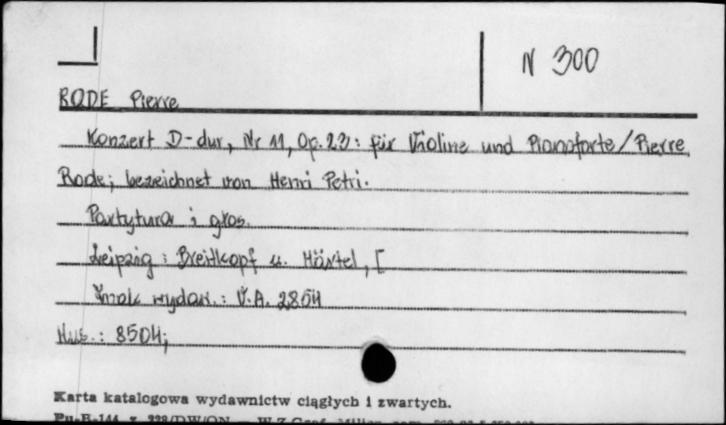 N 300
RODE Pierre
Konzert D-dur, Nr 11, Op. 23: für Violine und Pianoforte/Pierre
Rode; bezeichnet von Henri Petri.
Partytura i głos.
Leipzig: Breitkopf u. Härtel, [
Znak wydaw.: V.A. 2854
Mus.: 8504;
Karta katalogowa wydawnictw ciągłych i zwartych.
Pu-B-144